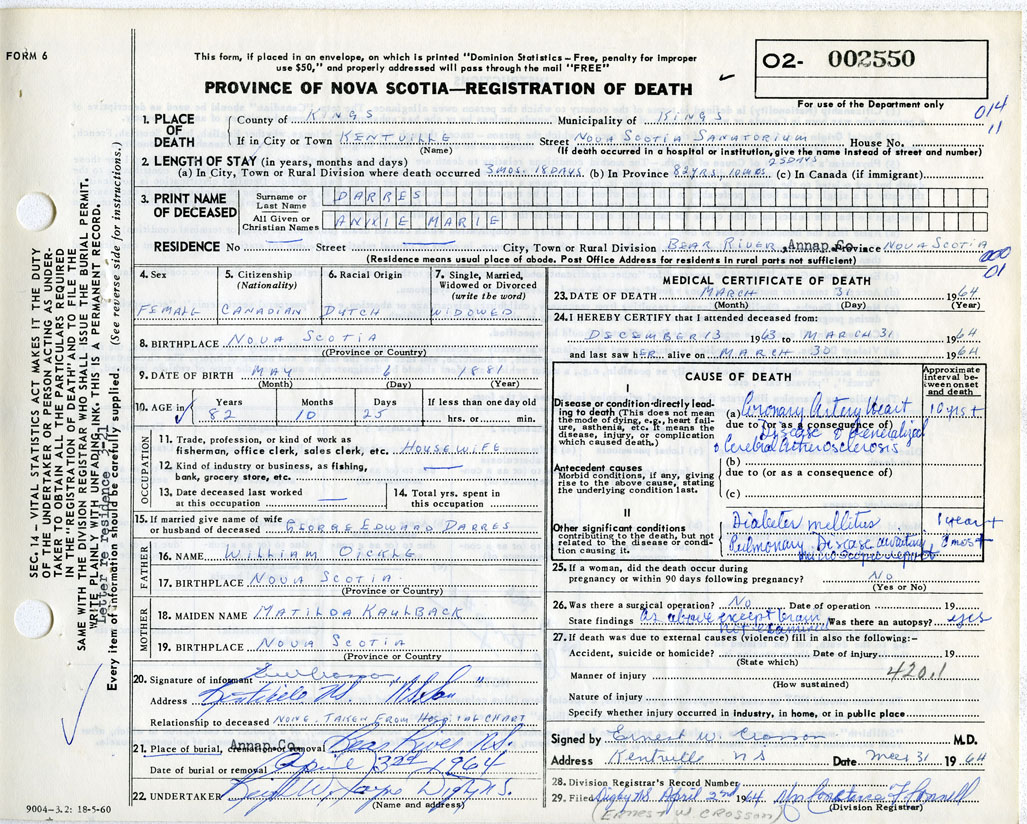 FORM 6
This form, if placed in an envelope, on which is printed "Dominion Statistics – Free, penalty for improper
use $50," and properly addressed will pass through the mail "FREE"
PROVINCE OF NOVA SCOTIA—REGISTRATION OF DEATH
02- 002550
For use of the Department only
014
11
1. PLACE OF DEATH
County of KINGS Municipality of KINGS
If in City or Town KENTVILLE Street NOVA SCOTIA SANATORIUM House No.
(Name) (If death occurred in a hospital or institution, give the name instead of street and number)
2. LENGTH OF STAY (in years, months and days) 25 DAYS
(a) In City, Town or Rural Division where death occurred 3 MOS. 18 DAYS (b) In Province 82 YRS. 10 MOS. (c) In Canada (if immigrant)
3. PRINT NAME OF DECEASED
Surname or Last Name DARRES
All Given or Christian Names ANNIE MARIE
RESIDENCE No — Street — City, Town or Rural Division BEAR RIVER, Annap.Co. Province NOVA SCOTIA
(Residence means usual place of abode. Post Office Address for residents in rural parts not sufficient)
000
01
4. Sex FEMALE
5. Citizenship (Nationality) CANADIAN
6. Racial Origin DUTCH
7. Single, Married, Widowed or Divorced (write the word) WIDOWED
8. BIRTHPLACE NOVA SCOTIA
((Province or Country)
9. DATE OF BIRTH MAY 6 1881
(Month) (Day) (Year)
10. AGE in Years 82 Months 10 Days 25 If less than one day old hrs. or min.
OCCUPATION
11. Trade, profession, or kind of work as
fisherman, office clerk, sales clerk, etc. HOUSEWIFE
12. Kind of industry or business, as fishing,
bank, grocery store, etc. —
13. Date deceased last worked
at this occupation —
14. Total yrs. spent in
this occupation
15. If married give name of wife
or husband of deceased GEORGE EDWARD DARRES
FATHER
16. NAME WILLIAM OICKLE
17. BIRTHPLACE NOVA SCOTIA
(Province or Country)
MOTHER
18. MAIDEN NAME MATILDA KAULBACK
19. BIRTHPLACE NOVA SCOTIA
(Province or Country)
20. Signature of informant
Address Kentville NS
Relationship to deceased NONE. TAKEN FROM HOSPITAL CHART
21. Place of burial, cremation or removal Annap.Co. Bear River N.S.
Date of burial or removal April 3rd 1964
22. UNDERTAKER Digby N.S.
(Name and address)
9004–3.2: 18-5-60
MEDICAL CERTIFICATE OF DEATH
23. DATE OF DEATH MARCH 31 1964
(Month) (Day) (Year)
24. I HEREBY CERTIFY that I attended deceased from:
DECEMBER 13 1963 to MARCH 31 1964
and last saw hER alive on MARCH 30 1964
CAUSE OF DEATH
Approximate interval between onset and death
I
Disease or condition directly leading to death (This does not mean the mode of dying, e.g., heart failure, asthenia, etc. It means the disease, injury, or complication which caused death.)
(a) Coronary Artery Heart 10 yrs +
due to (or as a consequence of)
Disease & Generalized
& Cerebral Arteriosclerosis
Antecedent causes
Morbid conditions, if any, giving rise to the above cause, stating the underlying condition last.
(b)
due to (or as a consequence of)
(c)
II
Other significant conditions
contributing to the death, but not related to the disease or condition causing it.
Diabetes mellitus 1 year +
Pulmonary Disease awaiting 3 mos +
microscopic report
25. If a woman, did the death occur during
pregnancy or within 90 days following pregnancy? NO
(Yes or No)
26. Was there a surgical operation? No Date of operation 19
State findings as above except brain Was there an autopsy? yes
27. If death was due to external causes (violence) fill in also the following:–
Accident, suicide or homicide? Date of injury 19
(State which)
Manner of injury 420.1
(How sustained)
Nature of injury
Specify whether injury occurred in industry, in home, or in public place
Signed by Ernest W. Crosson M.D.
Address Kentville NS Date Mar 31 1964
28. Division Registrar's Record Number
29. Filed Digby NS April 2nd 1964
(Division Registrar)
(ERNEST W. CROSSON)
SEC. 14 – VITAL STATISTICS ACT MAKES IT THE DUTY
OF THE UNDERTAKER OR PERSON ACTING AS UNDER-
TAKER TO OBTAIN ALL THE PARTICULARS REQUIRED
IN THE "REGISTRATION OF DEATH" AND TO FILE THE
SAME WITH THE DIVISION REGISTRAR WHO SHALL ISSUE THE BURIAL PERMIT.
WRITE PLAINLY WITH UNFADING INK. THIS IS A PERMANENT RECORD.
Letter re residence 2-21
Every item of information should be carefully supplied. (See reverse side for instructions.)